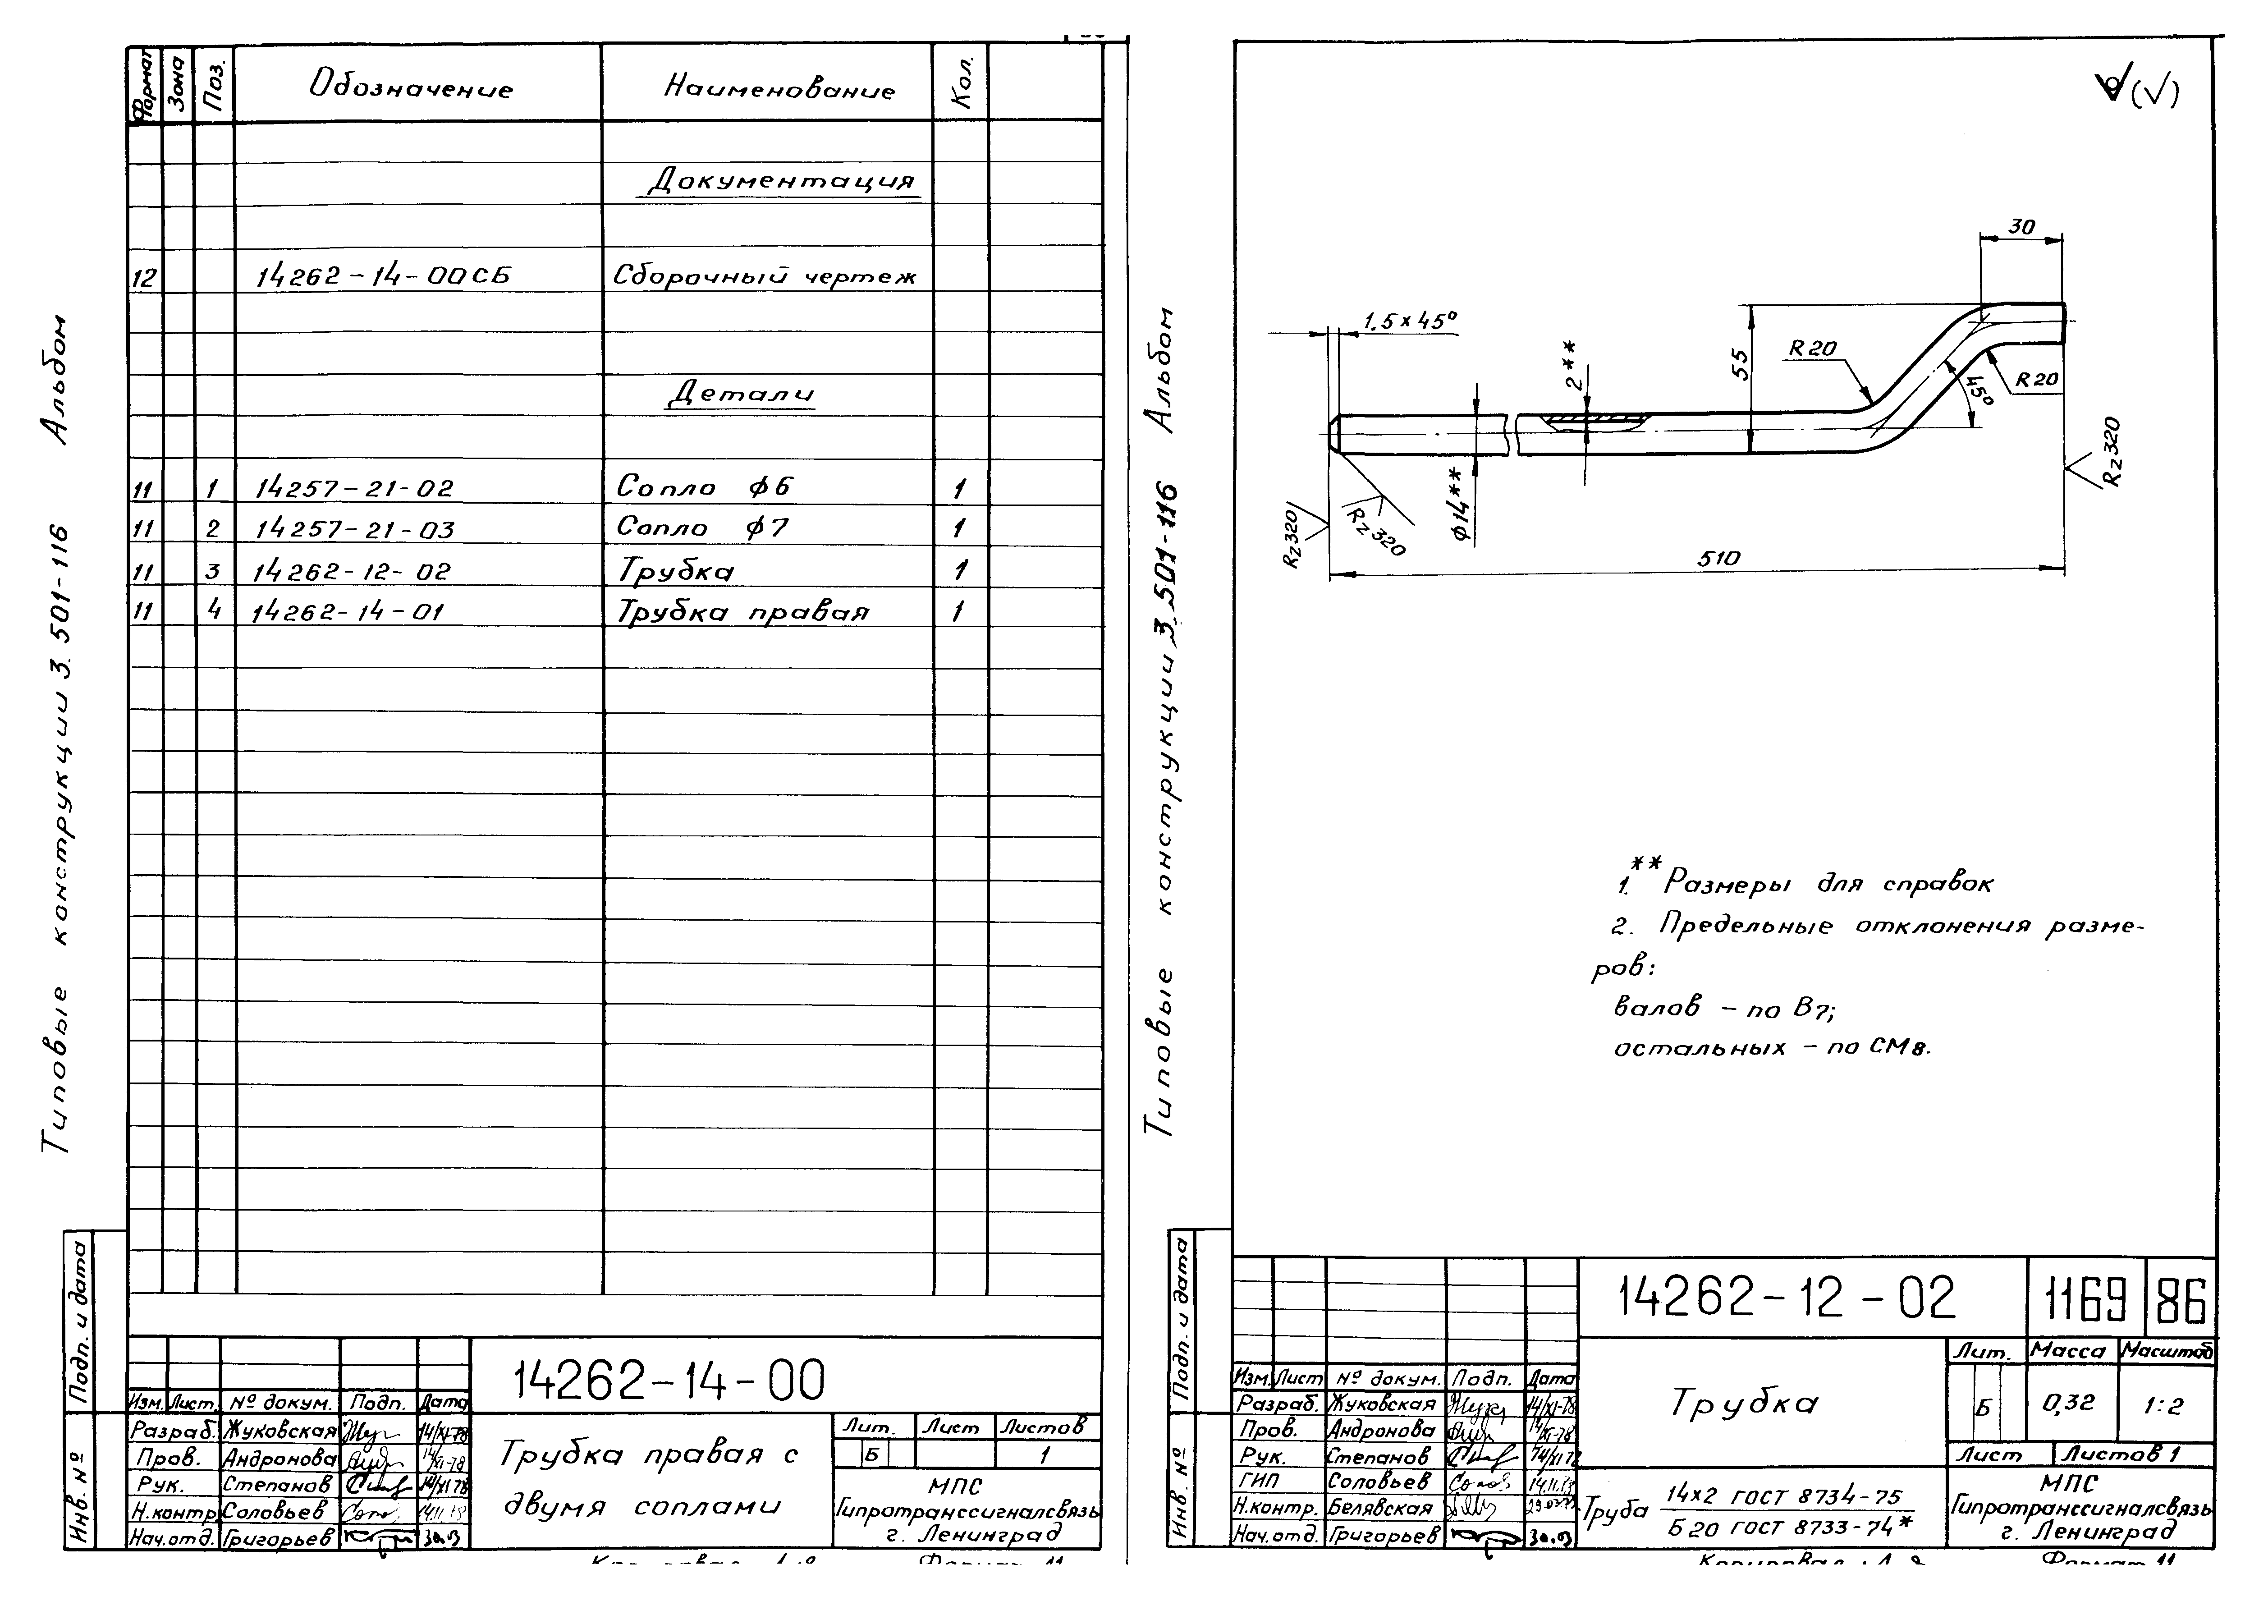 Формат Зона Поз. Обозначение Наименование Кол.
Документация
12 14262-14-00СБ Сборочный чертеж
Детали
11 1 14257-21-02 Сопло ϕ6 1
11 2 14257-21-03 Сопло ϕ7 1
11 3 14262-12-02 Трубка 1
11 4 14262-14-01 Трубка правая 1
Типовые конструкции 3.501-116 Альбом
Подп. и дата
Инв. №
14262-14-00
Изм. Лист. № докум. Подп. Дата
Разраб. Жуковская 14/XI-78
Пров. Андронова 14/XI-78
Рук. Степанов 14/XI 78
Н.контр. Соловьев
Нач.отд. Григорьев 30.03
Трубка правая с
двумя соплами
Лит. Лист Листов
Б 1
МПС
Гипротранссигналсвязь
г. Ленинград
Формат 11
Типовые конструкции 3.501-116 Альбом
(√)
30
1.5×45°
2**
55
R20
45°
R20
Rz320
ϕ14**
Rz320
Rz320
510
1.** Размеры для справок
2. Предельные отклонения разме-
ров:
валов - по В7;
остальных - по СМ8.
Подп. и дата
Инв. №
14262-12-02 1169 86
Изм. Лист № докум. Подп. Дата
Разраб. Жуковская 14/XI-78
Пров. Андронова 14/XI-78
Рук. Степанов 14/XI 78
ГИП Соловьев
Н.контр. Белявская
Нач.отд. Григорьев 30.03
Трубка
Лит. Масса Масштаб
Б 0,32 1:2
Лист Листов 1
Труба 14×2 ГОСТ 8734-75
Б 20 ГОСТ 8733-74*
МПС
Гипротранссигналсвязь
г. Ленинград
Копировал
Формат 11